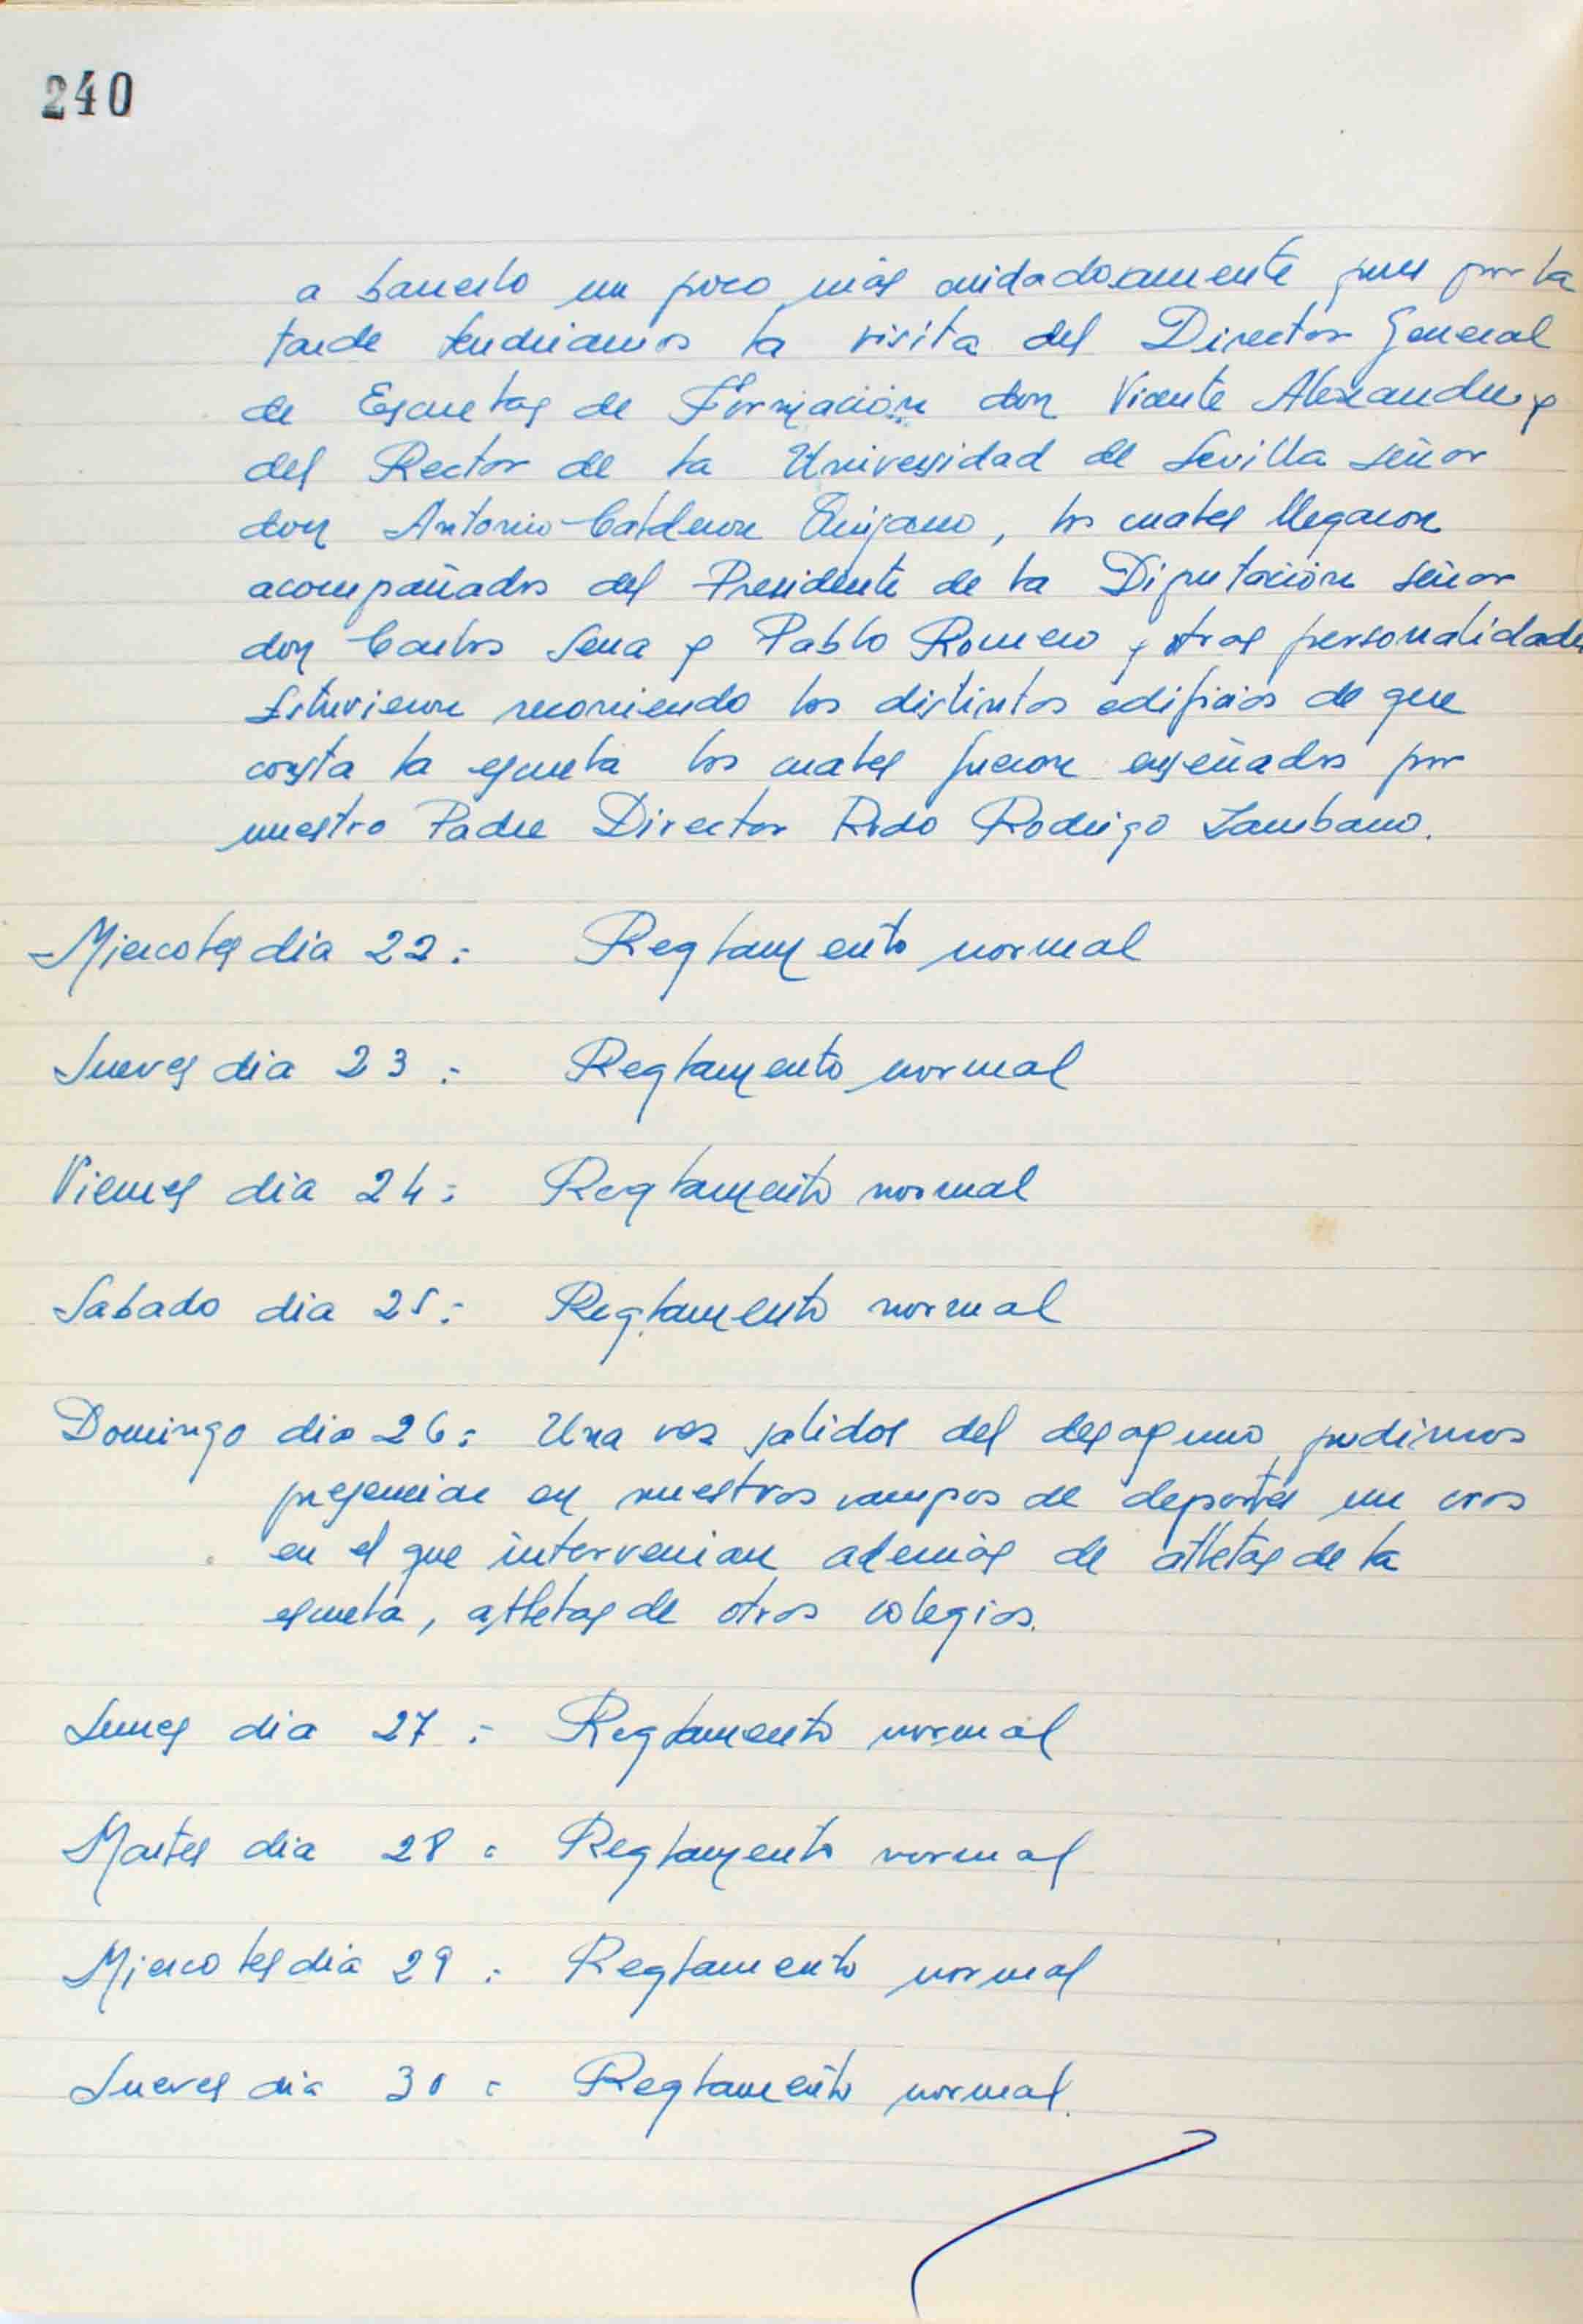 240
a barrerlo un poco más cuidadosamente pues por la
tarde tendriamos la visita del Director General
de Escuelas de Formación don Vicente Alexandre y
del Rector de la Universidad de Sevilla señor
don Antonio Calderon Quijano, los cuales llegaron
acompañados del Presidente de la Diputación señor
don Carlos Serra y Pablo Romero y otras personalidades
Estuvieron recorriendo los distintos edificios de que
consta la escuela los cuales fueron enseñados por
nuestro Padre Director Rvdo Rodrigo Zambano.
Miercoles dia 22: Reglamento normal
Jueves dia 23: Reglamento normal
Viernes dia 24: Reglamento normal
Sabado dia 25: Reglamento normal
Domingo dia 26: Una vez salidos del desayuno, pudimos
presenciar en nuestros campos de deportes un cros
en el que intervenian además de atletas de la
escuela, atletas de otros colegios.
Lunes dia 27: Reglamento normal
Martes dia 28: Reglamento normal
Miercoles dia 29: Reglamento normal
Jueves dia 30: Reglamento normal.